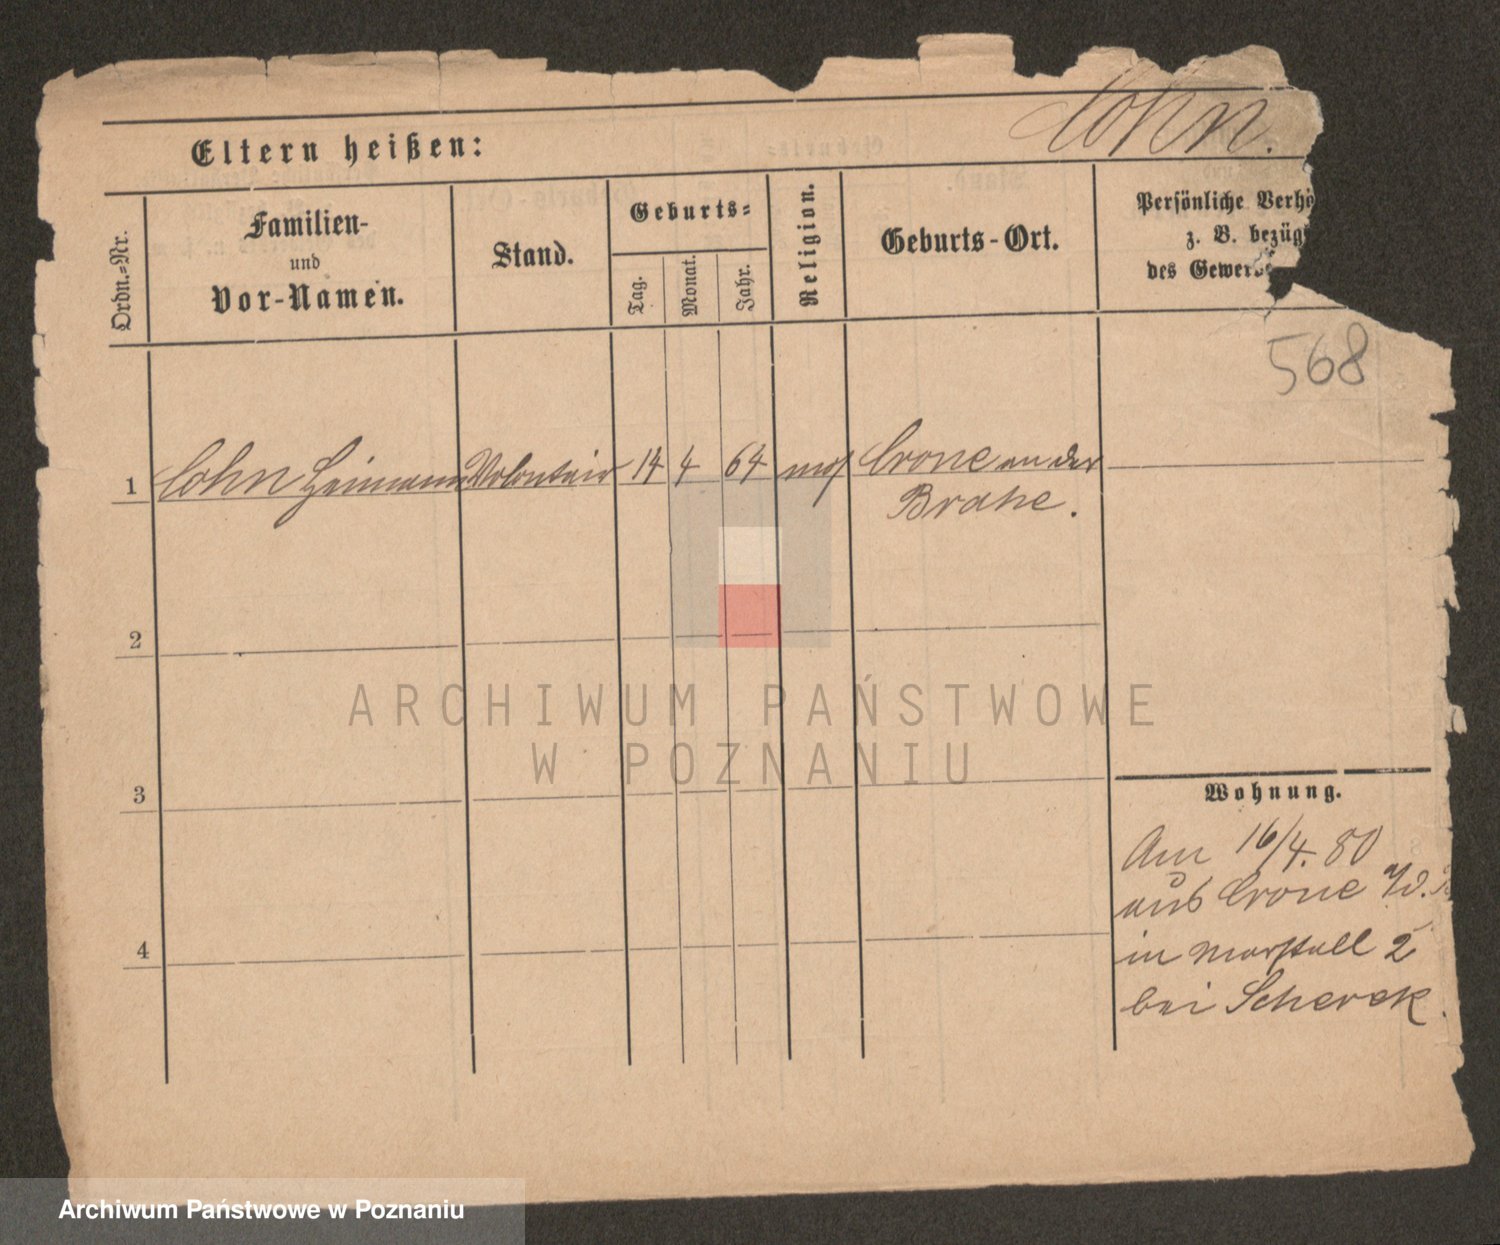 Cohn.
Eltern heißen:
Ordn.=Nr.
Familien-
und
Vor-Namen.
Stand.
Geburts=
Tag.
Monat.
Jahr.
Religion.
Geburts-Ort.
Persönliche Verhä
z. B. bezügl
des Gewerbe
568
1 Cohn Heimann Volontair 14 4 64 mos Crone an der
Brahe.
2
3
4
Wohnung.
Am 16/4. 80
aus Crone
in Marstall 2
bei Scherek.
ARCHIWUM PAŃSTWOWE
W POZNANIU
Archiwum Państwowe w Poznaniu